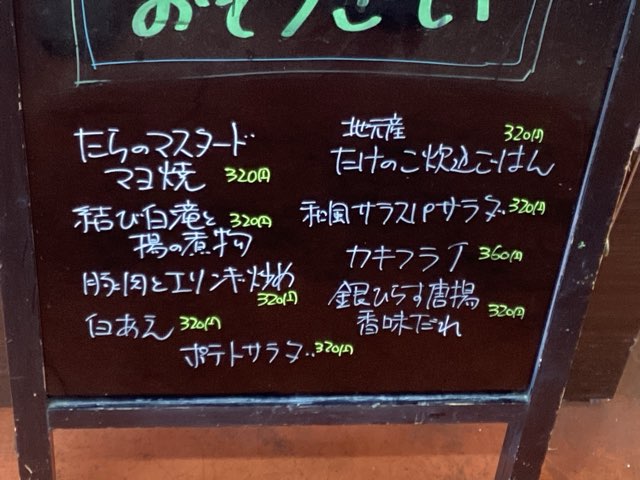 おそうざい
たらのマスタード
マヨ焼 320円
結び白滝と 320円
揚の煮物
豚肉とエリンギ炒め
320円
白あえ 320円
ポテトサラダ 320円
地元産 320円
たけのこ炊込ごはん
和風サラスパサラダ 320円
カキフライ 360円
銀ひらす唐揚 320円
香味だれ